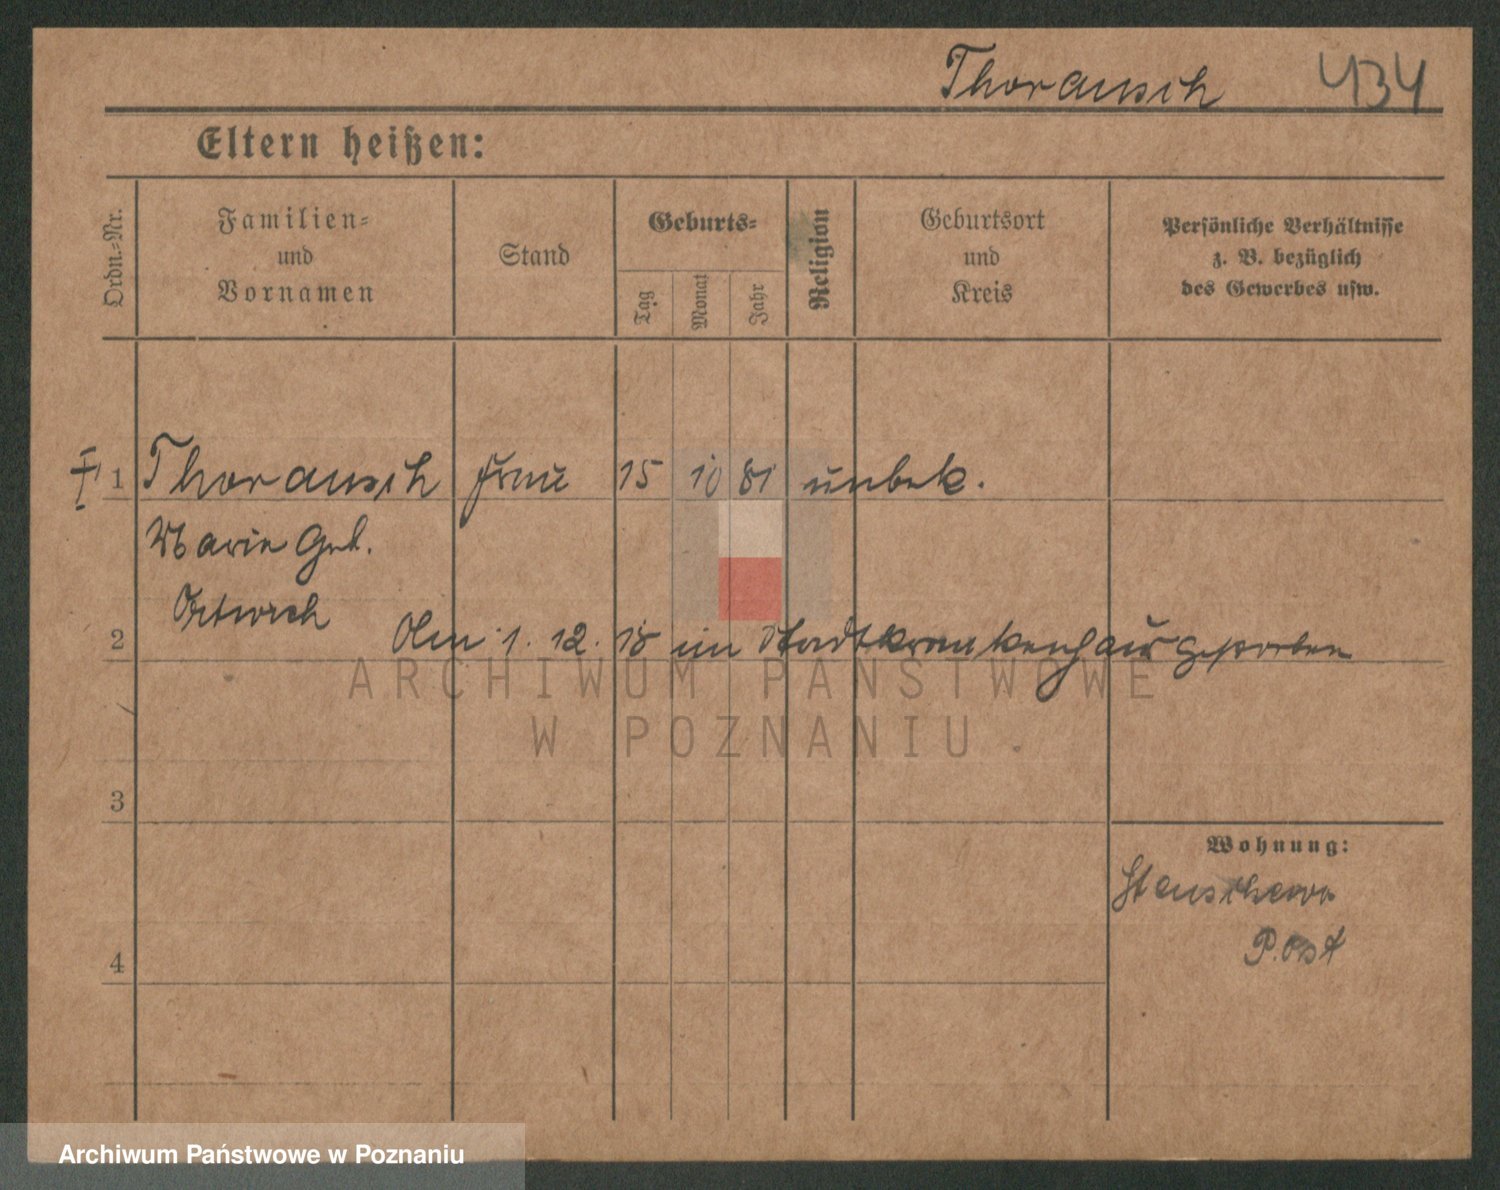 Thorausch 434
Eltern heißen:
Ordn.=Nr.
Familien=
und
Vornamen
Stand
Geburts=
Tag
Monat
Jahr
Religion
Geburtsort
und
Kreis
Persönliche Verhältnisse
z. B. bezüglich
des Gewerbes usw.
1 Thorausch Frau 15 10 81 unbek.
Marie geb.
2 Am 1. 12. 18 im Stadtkrankenhaus gestorben
ARCHIWUM PAŃSTWOWE
W POZNANIU
3
Wohnung:
P. Ost
4
Archiwum Państwowe w Poznaniu